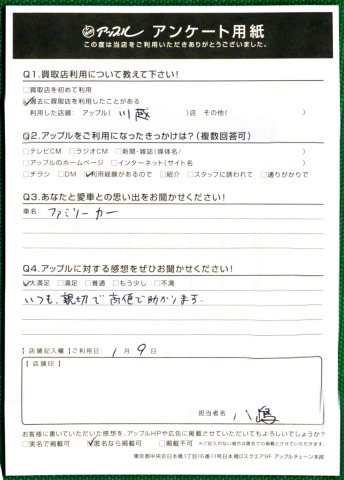 アップル アンケート用紙
この度は当店をご利用いただきありがとうございました。
Q1.買取店利用について教えて下さい!
□買取店を初めて利用
☑過去に買取店を利用したことがある
利用した店舗: アップル( 川越 )店 その他( )
Q2.アップルをご利用になったきっかけは?(複数回答可)
□テレビCM □ラジオCM □新聞・雑誌(媒体名/ )
□アップルのホームページ □インターネット(サイト名 )
□チラシ □DM ☑利用経験があるので □紹介 □スタッフに誘われて □通りがかりで
Q3.あなたと愛車との思い出をお聞かせください!
車名: ファミリーカー
Q4.アップルに対する感想をぜひお聞かせください!
☑大満足 □満足 □普通 □もう少し □不満
いつも、親切で高値で助かります。
【店舗記入欄】ご利用日: 1月 9日
【店舗印】
担当者名 八嶋
お客様に書いていただいた感想を、アップルHPや広告に掲載させていただいてもよろしいでしょうか?
□実名で掲載可 ☑匿名なら掲載可 □掲載不可 ※ご記入がない場合は匿名での掲載とさせていただきます。
東京都中央区日本橋1丁目16番11号日本橋Dスクエア9F アップルチェーン本部